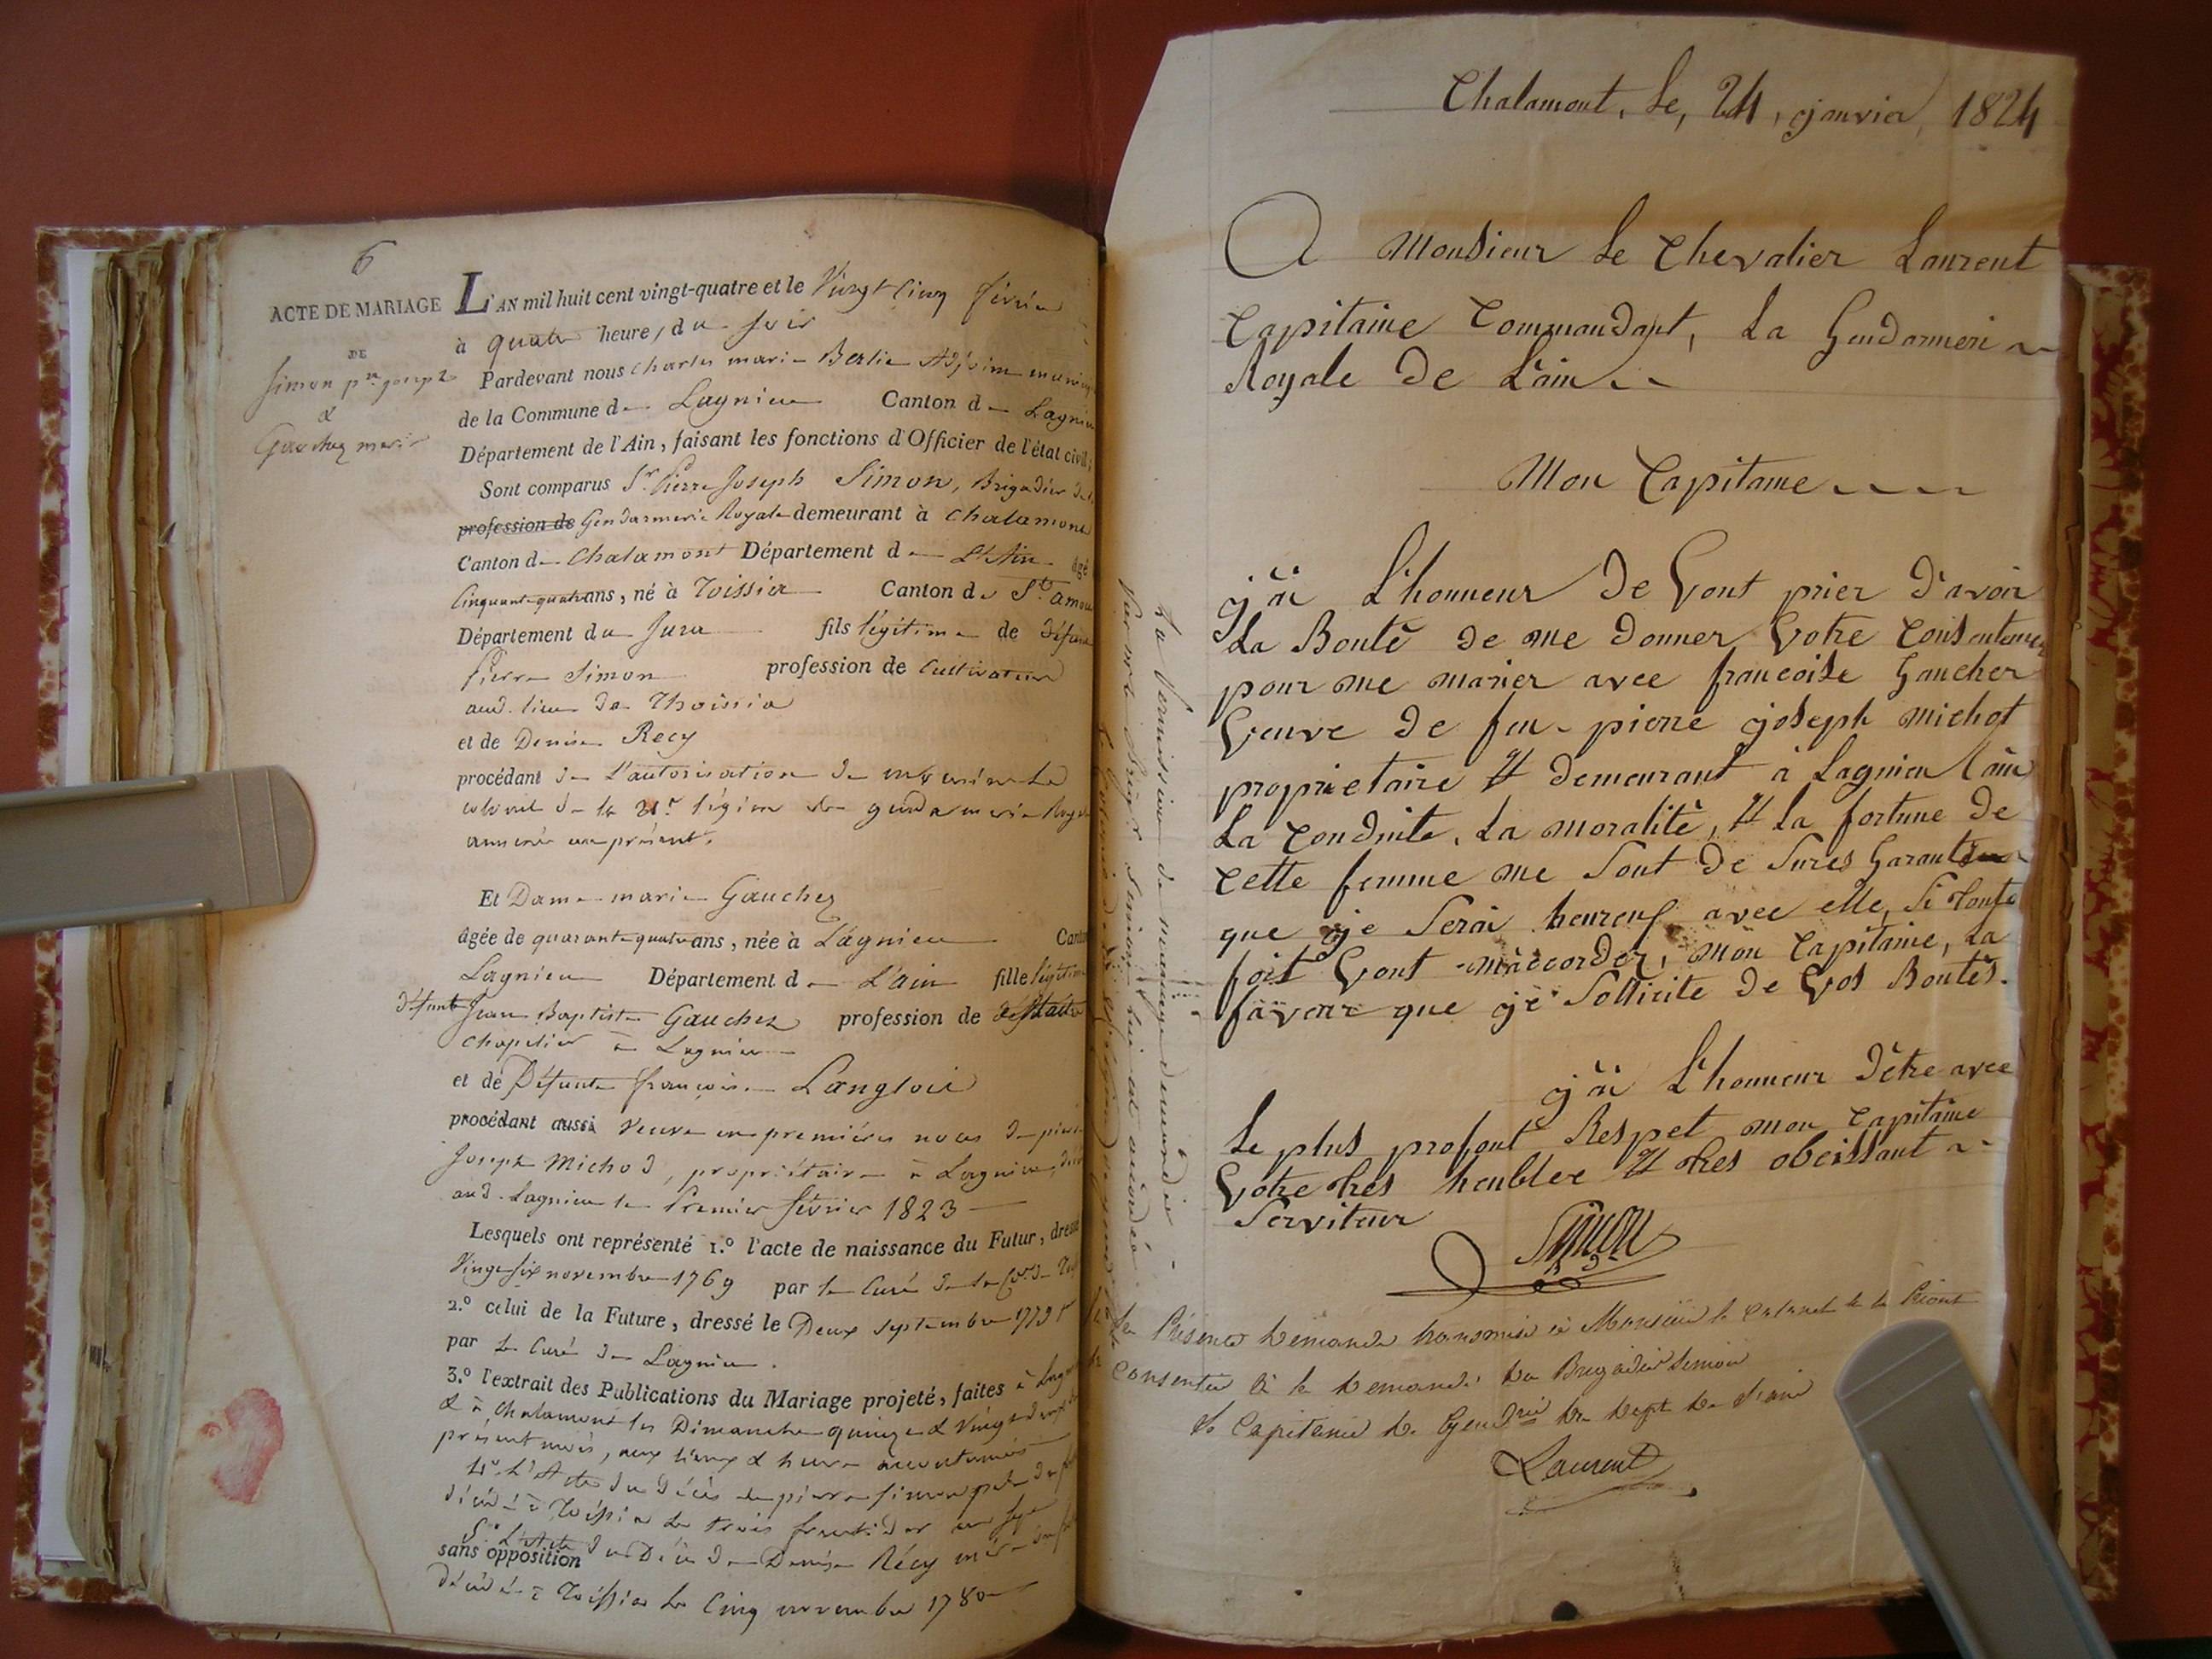 6
ACTE DE MARIAGE
DE
Simon pre. joseph
&
Gauchez marie
L'AN mil huit cent vingt-quatre et le Vingt Cinq février
à quatre heure, du soir
Pardevant nous Charles marie Berlie Adjoint
de la Commune de Lagnieu Canton de Lagnieu
Département de l'Ain, faisant les fonctions d'Officier de l'état civil;
Sont comparus Sr. Pierre Joseph Simon, Brigadier de
profession de Gendarmerie Royale demeurant à Chalamont
Canton de Chalamont Département de L'Ain âgé
Cinquante quatre ans, né à Toissia Canton de St. amou
Département du Jura fils légitime de défunt
Pierre Simon profession de Cultivateur
aud. lieu de Thoissia
et de Denise Recy
procédant de L'autorisation de
colonel de la 21e. légion de gendarmerie Roya
annexée au présent.
Et Dame marie Gauchez
âgée de quarante quatre ans, née à Lagnieu Canton
Lagnieu Département de L'ain fille légitime
défunt Jean Baptiste Gauchez profession de
chapelier à Lagnieu
et de Défunte françoise Langlois
procédant aussi veuve en premières noces de pierre
Joseph Michod, propriétaire à Lagnieu,
aud. Lagnieu le Premier février 1823
Lesquels ont représenté 1.º l'acte de naissance du Futur, dressé
Vingt six novembre 1769 par le Curé de la
2.º celui de la Future, dressé le Deux septembre 1779
par le Curé de Lagnieu.
3.º l'extrait des Publications du Mariage projeté, faites à Lagnieu
& à Chalamont les Dimanche quinze & Vingt deux
présent mois, aux lieux & heure accoutumés
4º. L'Acte du décès de pierre Simon père du futur
décédé à Toissia le trois fructidor an
5º. L'Acte du Décès de Denise Récy mère du futur
sans opposition
décédée à Toissia le Cinq novembre 1780
Chalamont, Le, 24, janvier, 1824
A Monsieur Le Chevalier Laurent
Capitaine Commandant, La Gendarmeri
Royale De L'ain
Mon Capitaine
j'ai L'honneur De Vous prier D'avoir
La Bonté de me Donner Votre Consenteme
pour me marier avec francoise Gaucher
Veuve de feu pierre joseph michot
proprietaire et Demeurant à Lagnieu (ain
La Conduite, La moralité, et La fortune De
Cette femme me Sont De Sures Garants
que je Serai heureux avec elle, Si toute
fois Vous m'accorder, mon Capitaine, La
faveur que je Sollicite De Vos Bontés.
j'ai L'honneur D'être avec
Le plus profont Respet mon Capitaine
Votre tres heublee et tres obeissant
Serviteur
Simon
La Présente demande transmise à Monsieur le Colonel
Consentir à la demande du Brigadier Simon
Le Capitaine de Gendrie du Dept de L'ain
Laurent
La Permission de mariage demandée
Par notre Brigr Simon lui est accordée